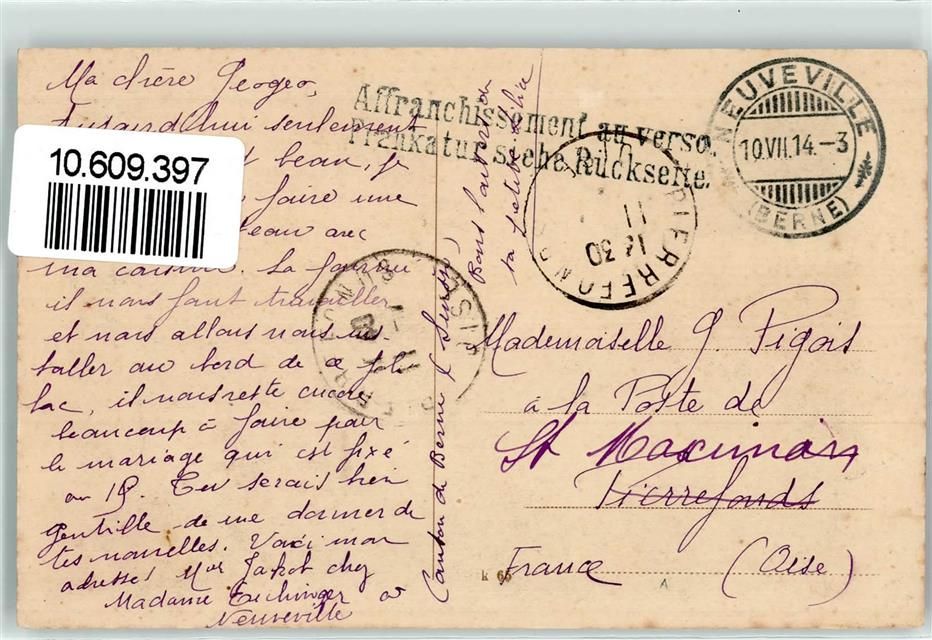 Ma chère Geogeo,
Aujourd'hui seulement
beau, je
faire une
bateau avec
ma cousine. La journée
il nous faut travailler
et nous allons nous ins-
taller au bord de ce joli
lac, il nous reste encore
beaucoup à faire pour
le mariage qui est fixé
au 18. Tu serais bien
gentille de me donner de
tes nouvelles. Voici mon
adresse Mme Jakot chez
Madame à
Neuveville
Canton de Berne (Suisse)
Bons baisers de
ta
10.609.397
Affranchissement au verso.
Frankatur siehe Rückseite.
NEUVEVILLE
10.VII.14.-3
(BERNE)
PIERREFONDS
11
OISE
Mademoiselle G. Pigois
à la Poste de
St Maximin
Pierrefonds
France (Oise)
k 65
A